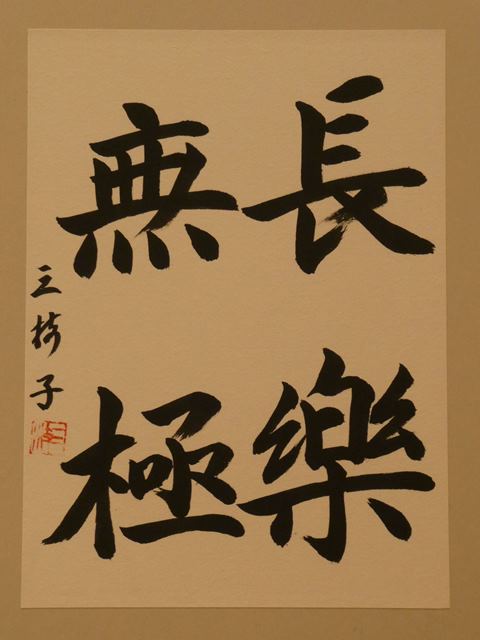 長樂
無極
三椅子